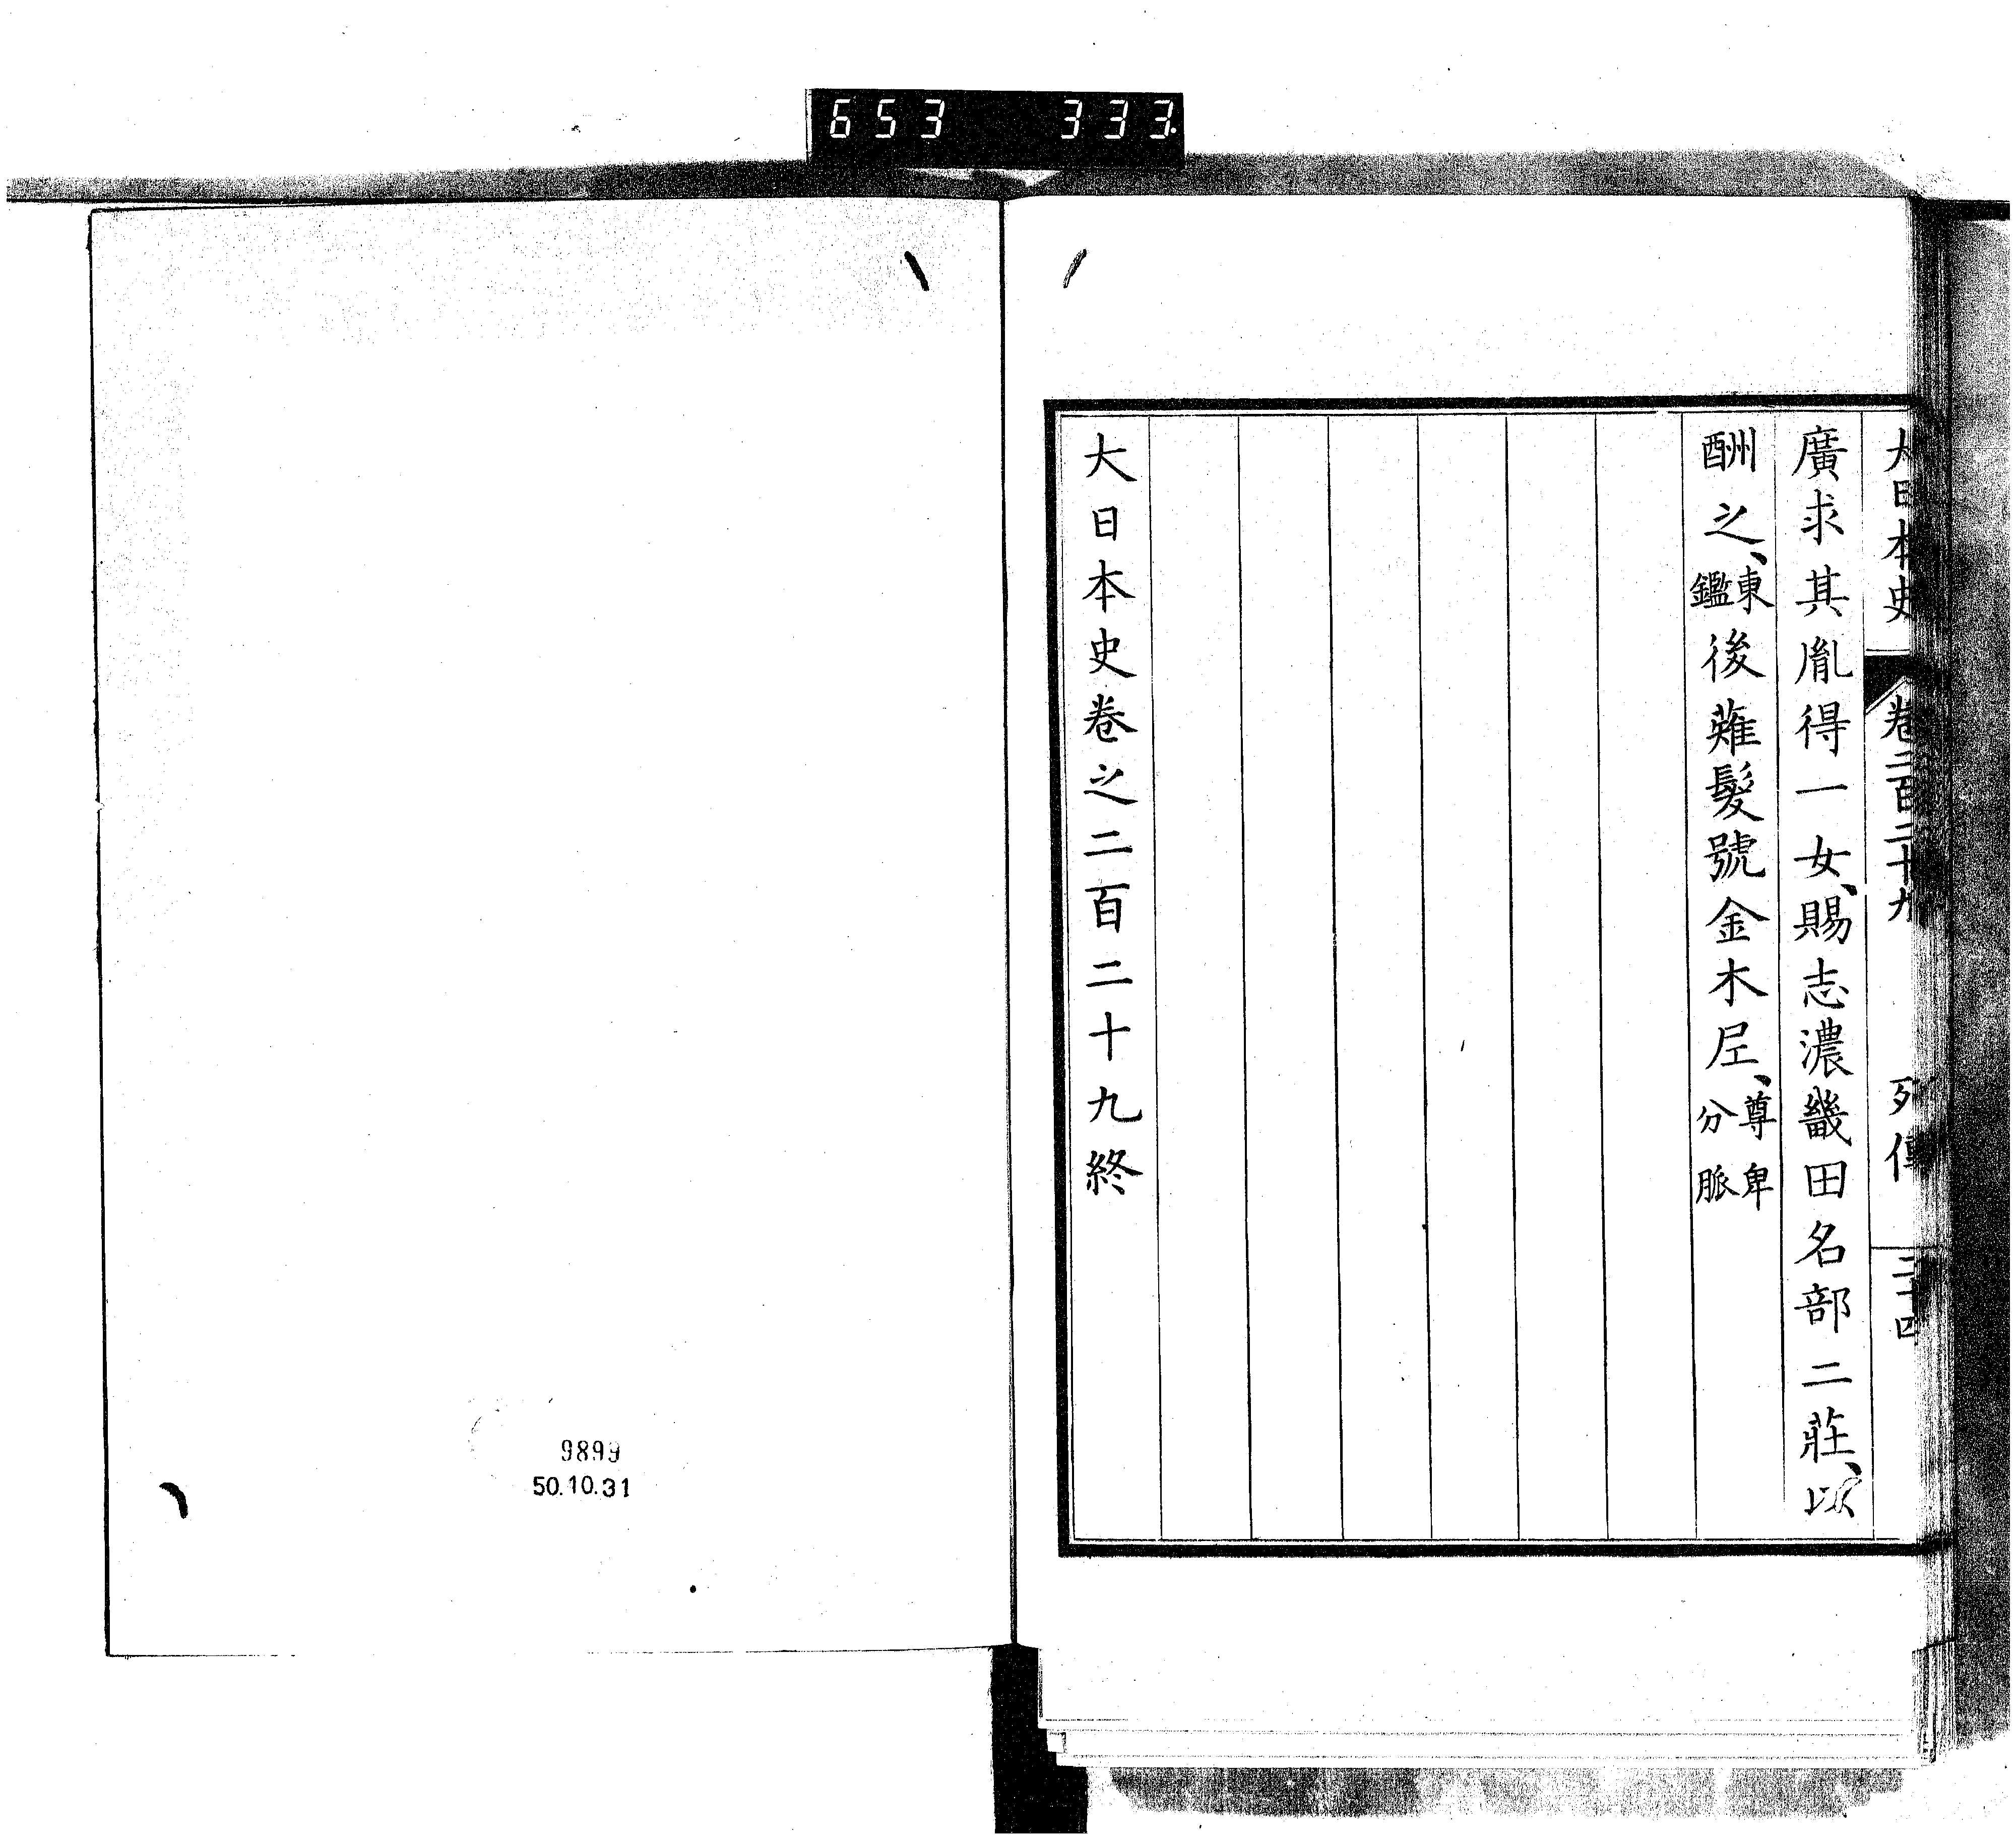 653 333
大日本史 卷二百二十九 列傳 二十四
廣求其胤得一女、賜志濃畿田名部二莊、以
酬之、東鑑後薙髮號金木尼、尊卑分脈
大日本史卷之二百二十九終
9899
50.10.31